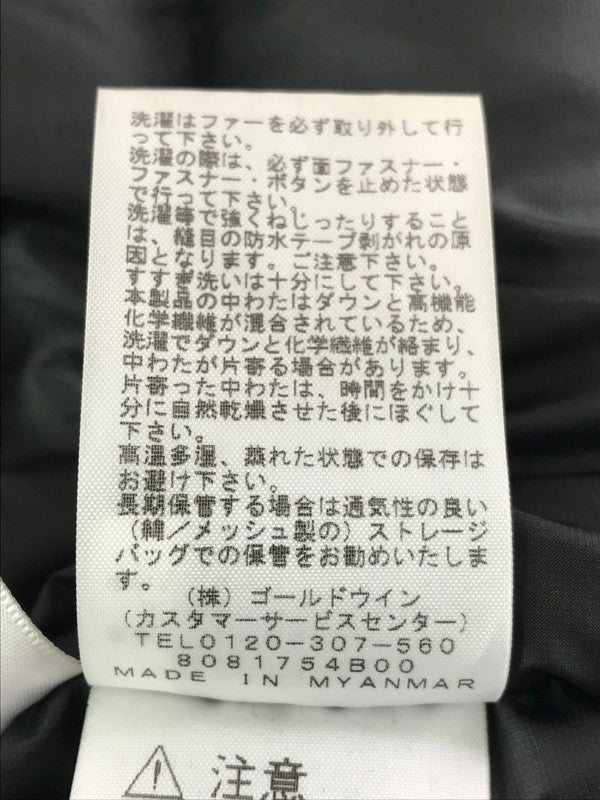 洗濯はファーを必ず取り外して行
って下さい。
洗濯の際は、必ず面ファスナー・
ファスナー・ボタンを止めた状態
で行って下さい。
洗濯等で強くねじったりすること
は、縫目の防水テープ剥がれの原
因となります。ご注意下さい。
すすぎ洗いは十分にして下さい。
本製品の中わたはダウンと高機能
化学繊維が混合されているため、
洗濯でダウンと化学繊維が絡まり、
中わたが片寄る場合があります。
片寄った中わたは、時間をかけ十
分に自然乾燥させた後にほぐして
下さい。
高温多湿、蒸れた状態での保存は
お避け下さい。
長期保管する場合は通気性の良い
(綿/メッシュ製の)ストレージ
バッグでの保管をお勧めいたしま
す。
(株)ゴールドウイン
(カスタマーサービスセンター)
TEL0120-307-560
8081754B00
MADE IN MYANMAR
注意